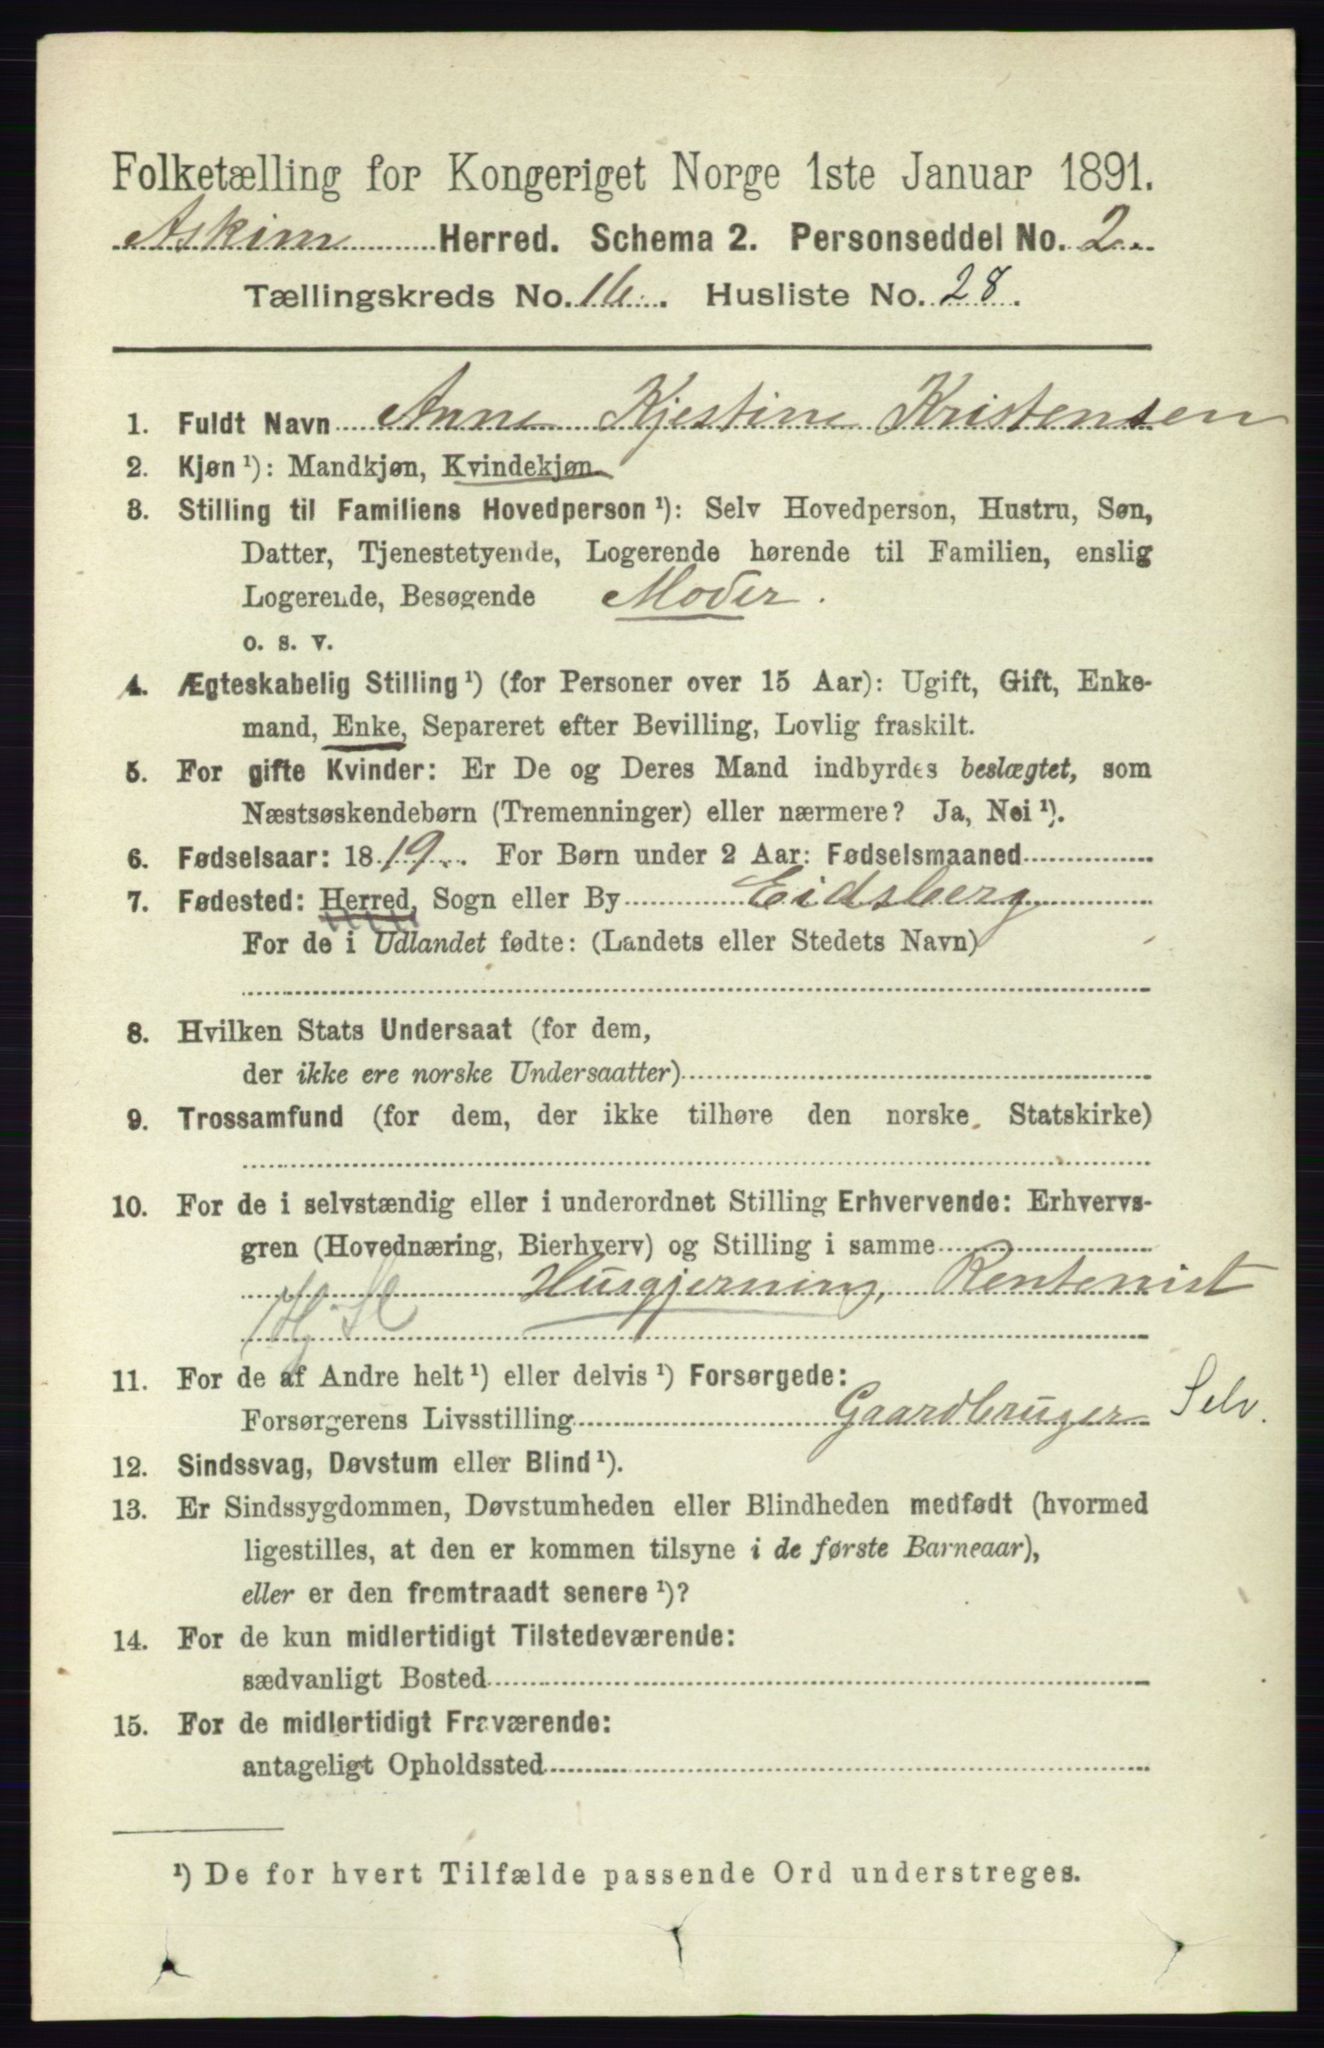 Folketælling for Kongeriget Norge 1ste Januar 1891.
Askim Herred. Schema 2. Personseddel No. 2
Tællingskreds No. 16. Husliste No. 28.
1. Fuldt Navn Anne Kjestine Kristensen
2. Kjøn ¹): Mandkjøn, Kvindekjøn
3. Stilling til Familiens Hovedperson ¹): Selv Hovedperson, Hustru, Søn,
Datter, Tjenestetyende, Logerende hørende til Familien, enslig
Logerende, Besøgende Moder.
o. s. v.
4. Ægteskabelig Stilling ¹) (for Personer over 15 Aar): Ugift, Gift, Enke-
mand, Enke, Separeret efter Bevilling, Lovlig fraskilt.
5. For gifte Kvinder: Er De og Deres Mand indbyrdes beslægtet, som
Næstsøskendebørn (Tremenninger) eller nærmere? Ja, Nei ¹).
6. Fødselsaar: 1819. For Børn under 2 Aar: Fødselsmaaned
7. Fødested: Herred, Sogn eller By Eidsberg
For de i Udlandet fødte: (Landets eller Stedets Navn)
8. Hvilken Stats Undersaat (for dem,
der ikke ere norske Undersaatter)
9. Trossamfund (for dem, der ikke tilhøre den norske Statskirke)
10. For de i selvstændig eller i underordnet Stilling Erhvervende: Erhvervs-
gren (Hovednæring, Bierhverv) og Stilling i samme
Husgjerning, Rentenist
11. For de af Andre helt ¹) eller delvis ¹) Forsørgede:
Forsørgerens Livsstilling Gaardbruger Selv.
12. Sindssvag, Døvstum eller Blind ¹).
13. Er Sindssygdommen, Døvstumheden eller Blindheden medfødt (hvormed
ligestilles, at den er kommen tilsyne i de første Barneaar),
eller er den fremtraadt senere ¹)?
14. For de kun midlertidigt Tilstedeværende:
sædvanligt Bosted
15. For de midlertidigt Fraværende:
antageligt Opholdssted
¹) De for hvert Tilfælde passende Ord understreges.